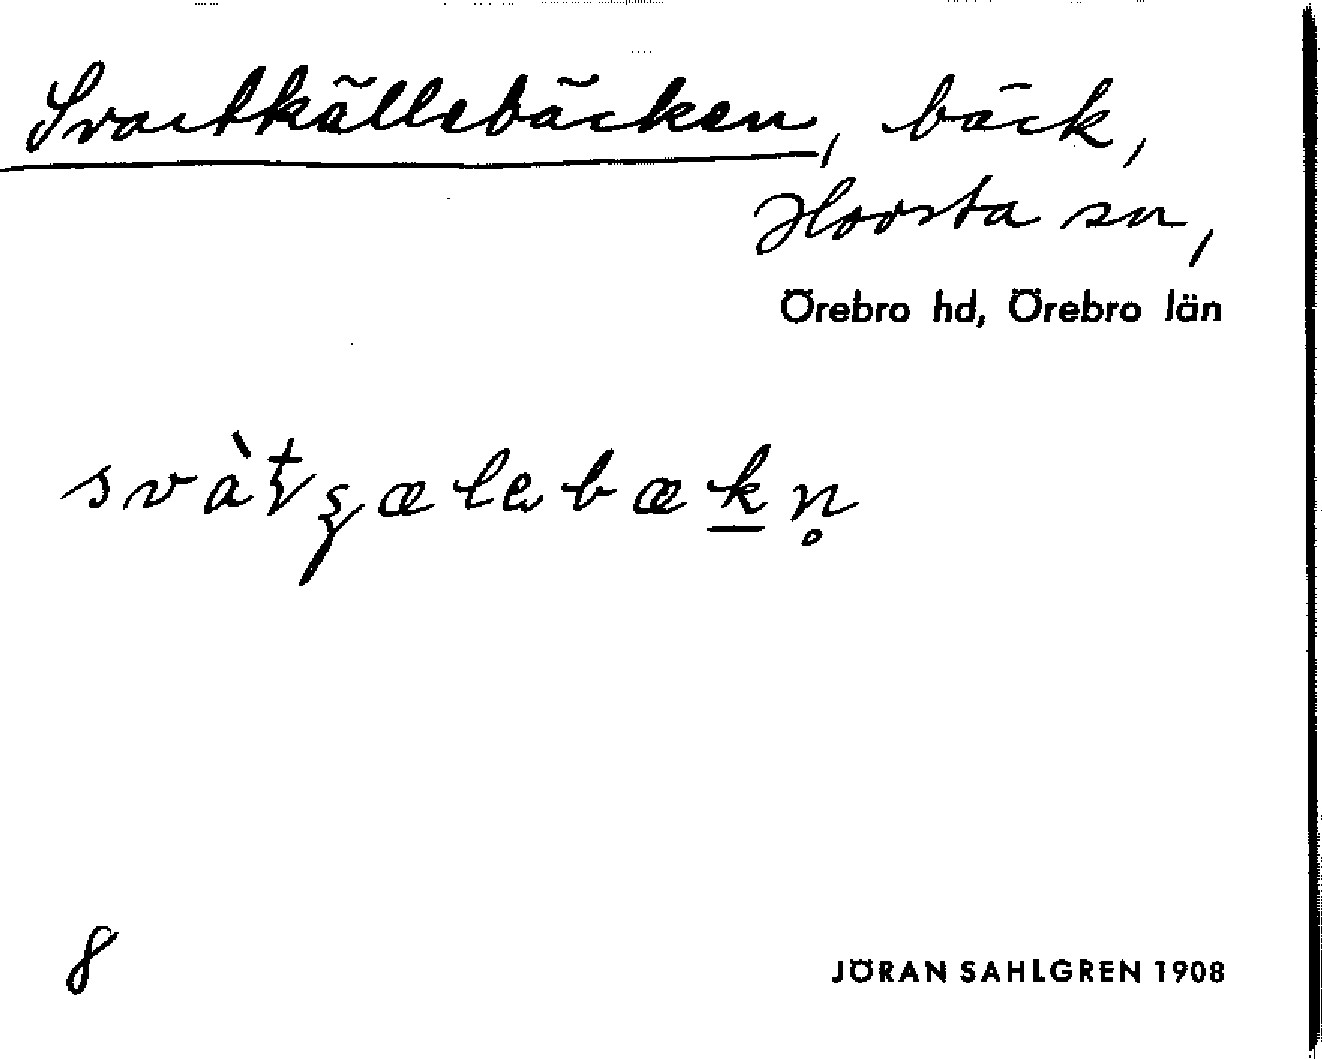 Svartkällebäcken, bäck,
Hovsta sn,
Örebro hd, Örebro län
8
JÖRAN SAHLGREN 1908